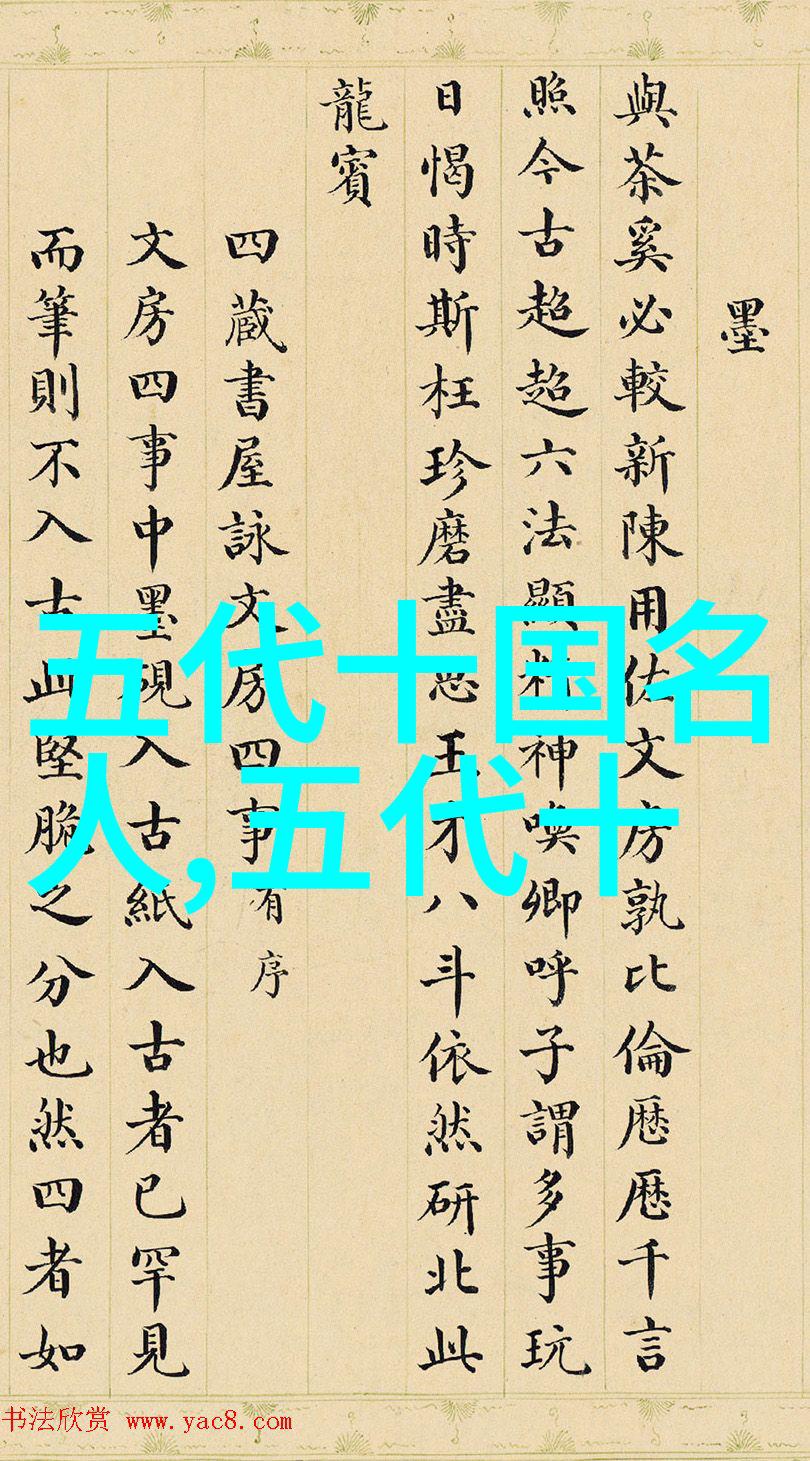 墨
與茶奚必較新陳用佐文房孰比倫厯厯千言
照今古超超六法顯神喚卿呼子謂多事玩
日愒時斯枉珍磨盡思王才八斗依然研北此
龍賓
四蔵書屋詠文房四事有序
文房四事中墨硯入古紙入古者已罕見
而筆則不入古此堅脆之分也然四者如
五代十国名
人,五代十
书法欣赏 www.yac8.com